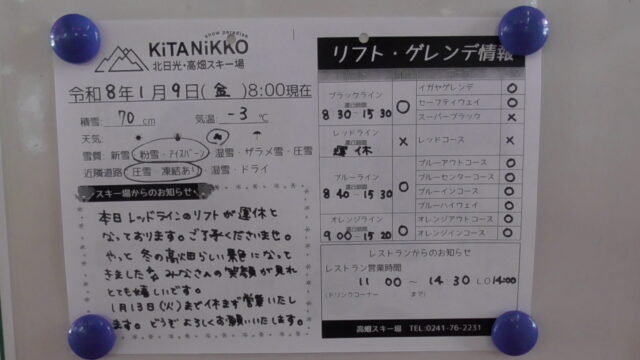 snow paradise
KiTANiKKO
北日光・高畑スキー場
令和8年1月9日(金)8:00現在
積雪: 70 cm 気温: -3 ℃
天気:
雪質: 新雪・粉雪・アイスバーン・湿雪・ザラメ雪・圧雪
近隣道路 圧雪・凍結あり・湿雪・ドライ
スキー場からのお知らせ
本日レッドラインのリフトが運休と
なっております。ご了承くださいませ。
やっと冬の高畑らしい景色になって
きました みなさんの笑顔が見れ
とても嬉しいです。
1月13日(火)まで休まず営業いたし
ます。どうぞよろしくお願いいたします。
リフト・ゲレンデ情報
ブラックライン
運行時間
8 30〜15 30
○
イガヤゲレンデ ○
セーフティウェイ ○
スーパーブラック ×
レッドライン
運行時間
運休
×
レッドコース ×
ブルーライン
運行時間
8 40〜15 30
○
ブルーアウトコース ○
ブルーセンターコース ○
ブルーインコース ○
ブルーハイウェイ ○
オレンジライン
運行時間
9 00〜15 20
○
オレンジアウトコース ○
オレンジインコース ○
レストランからのお知らせ
レストラン営業時間
11 00 〜 14 30 LO14:00
(ドリンクコーナー まで)
高畑スキー場 TEL:0241-76-2231